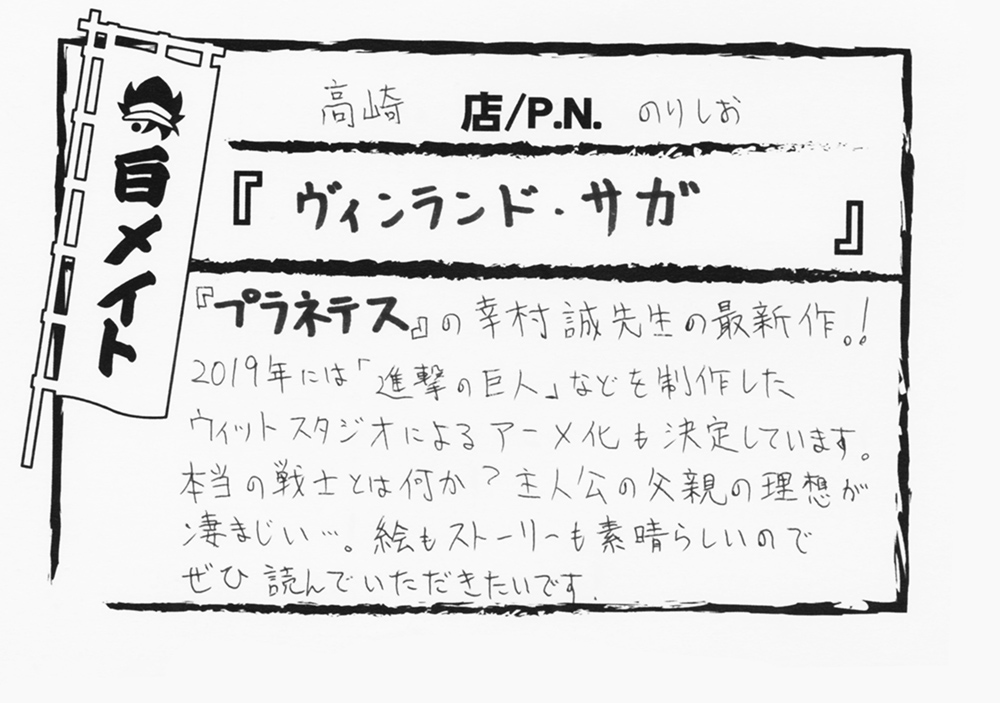 高崎 店/P.N. のりしお
『ヴィンランド・サガ』
『プラネテス』の幸村誠先生の最新作!!
2019年には「進撃の巨人」などを制作した
ウィットスタジオによるアーメ化も決定しています。
本当の戦士とは何か?主人公の父親の理想が
凄まじい…。絵もストーリーも素晴らしいので
ぜひ読んでいただきたいです.
メイト